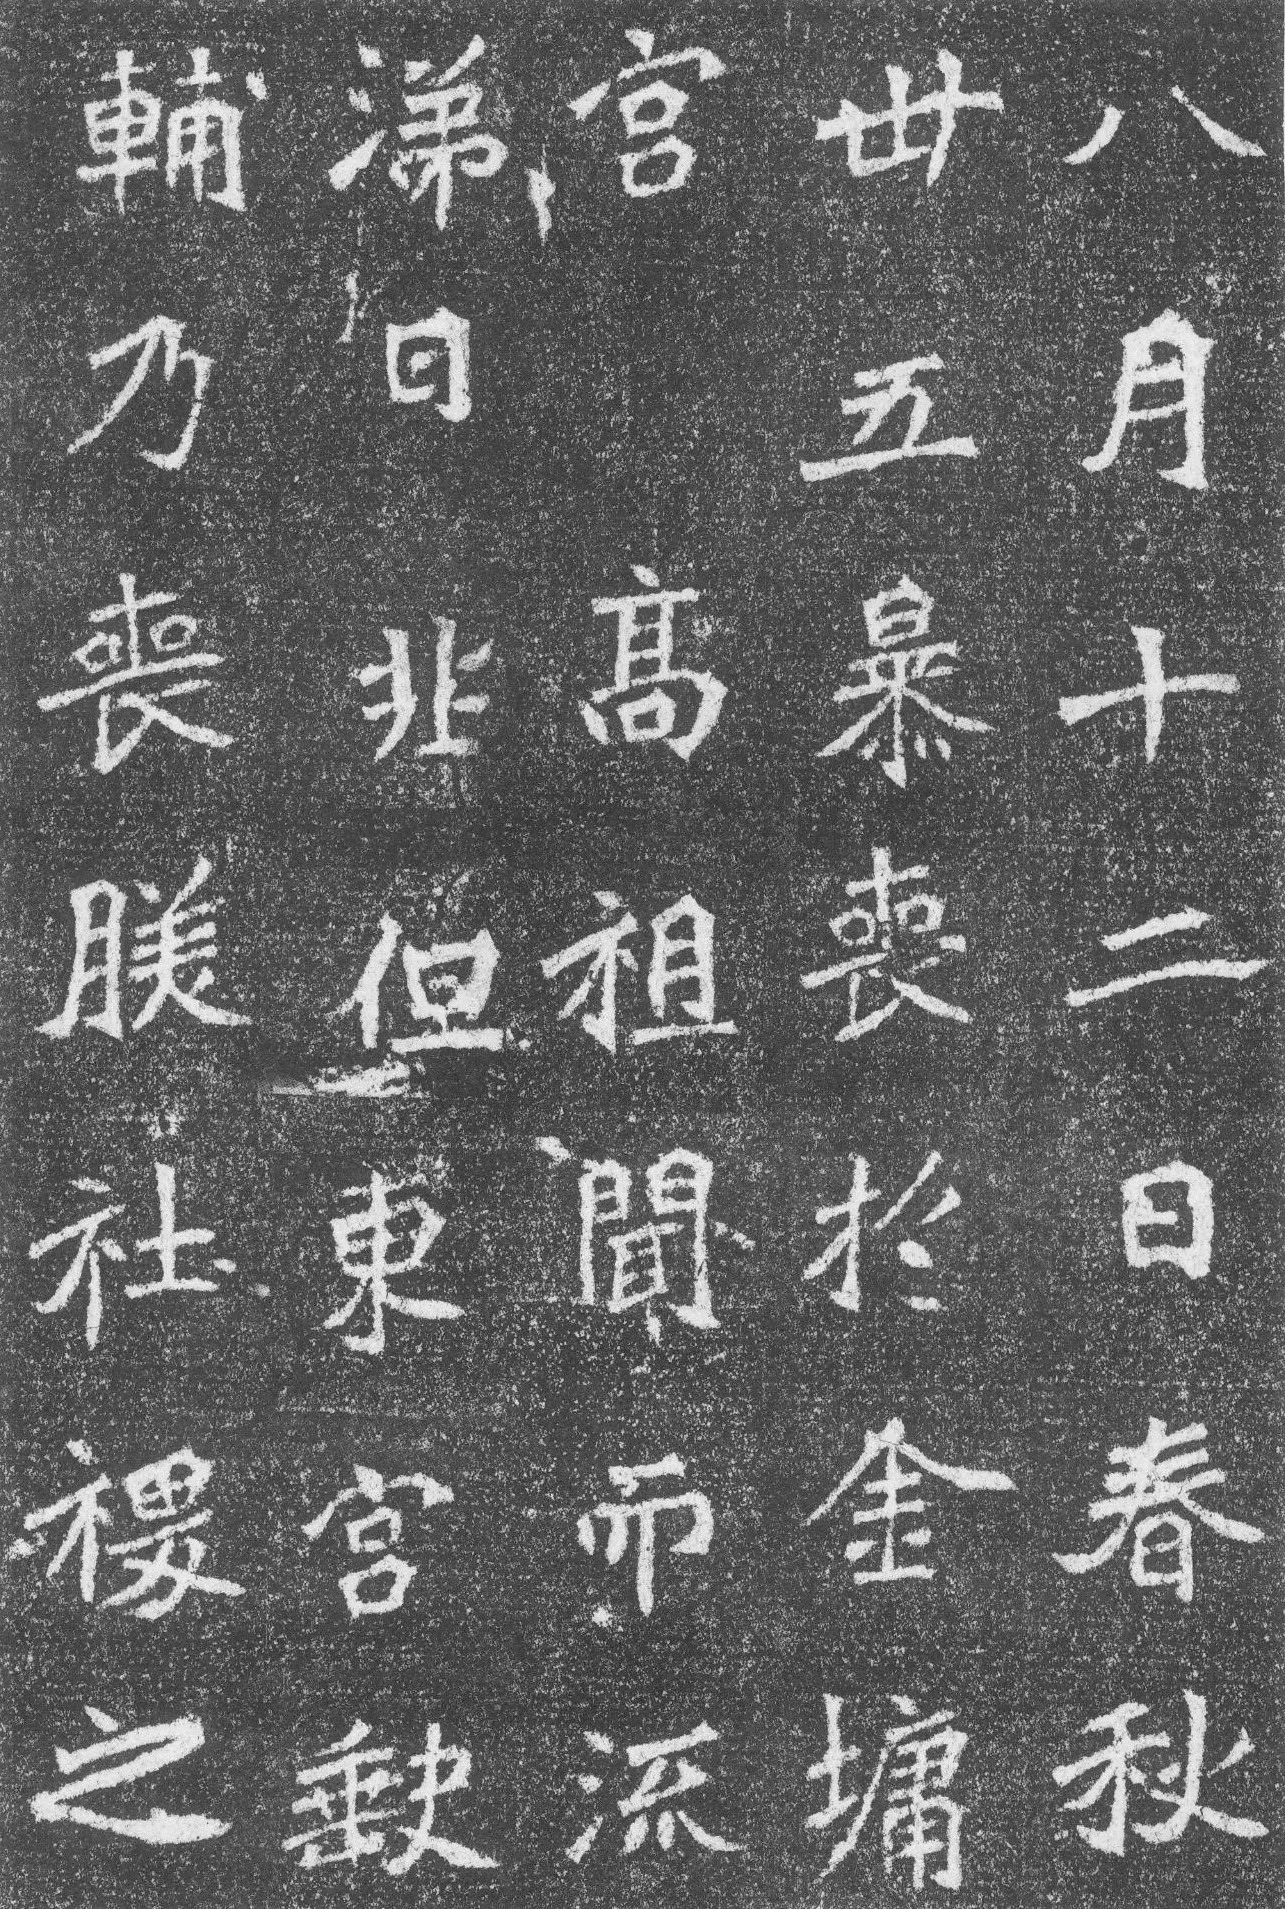 八月十二日春秋
丗五暴喪於金墉
宮 高祖聞而流
涕曰非但東宮缺
輔乃喪朕社稷之